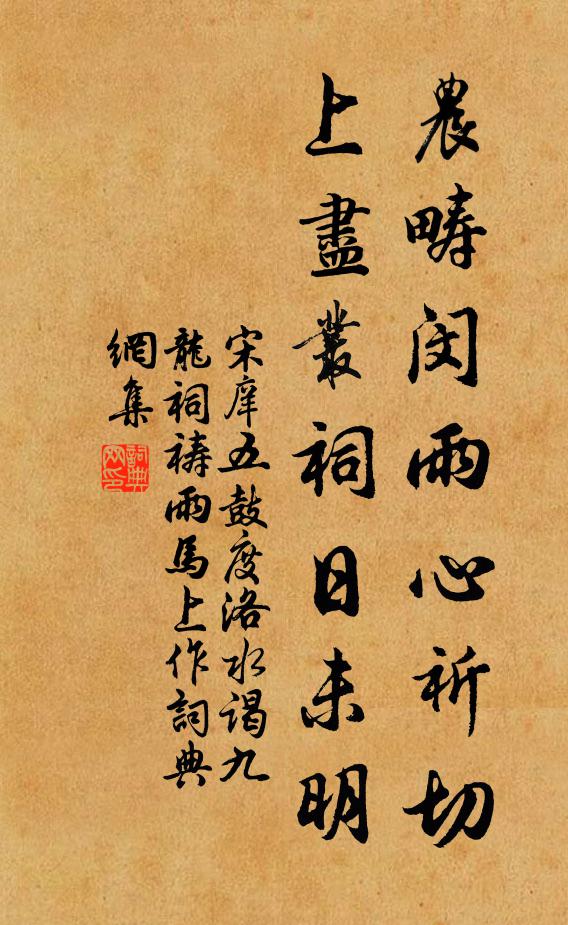 農疇閔雨心祈切
上盡叢祠日未明
宋庠五鼓度洛水謁九
龍祠禱雨馬上作詞典
網集
詞典
网印